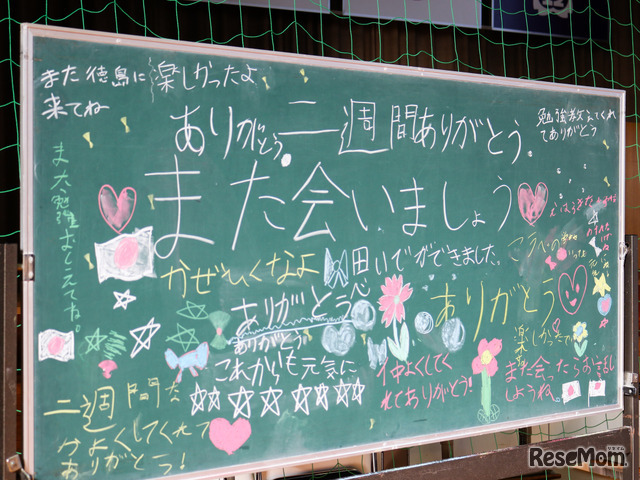 また徳島に
来てね
楽しかったよ
ありがとう。
二週間ありがとう。
勉強教えてくれ
てありがとう
また会いましょう
また勉強おしえてね。
かぜひくなよ
思いでができました。
ありがとう
ありがとう
ありがとう
これからも元気に
仲よくしてく
れてありがとう!
楽しかったで
また会ったらお話し
しようね。
二週間
仲よくしてくれて
ありがとう!
ReseMom.